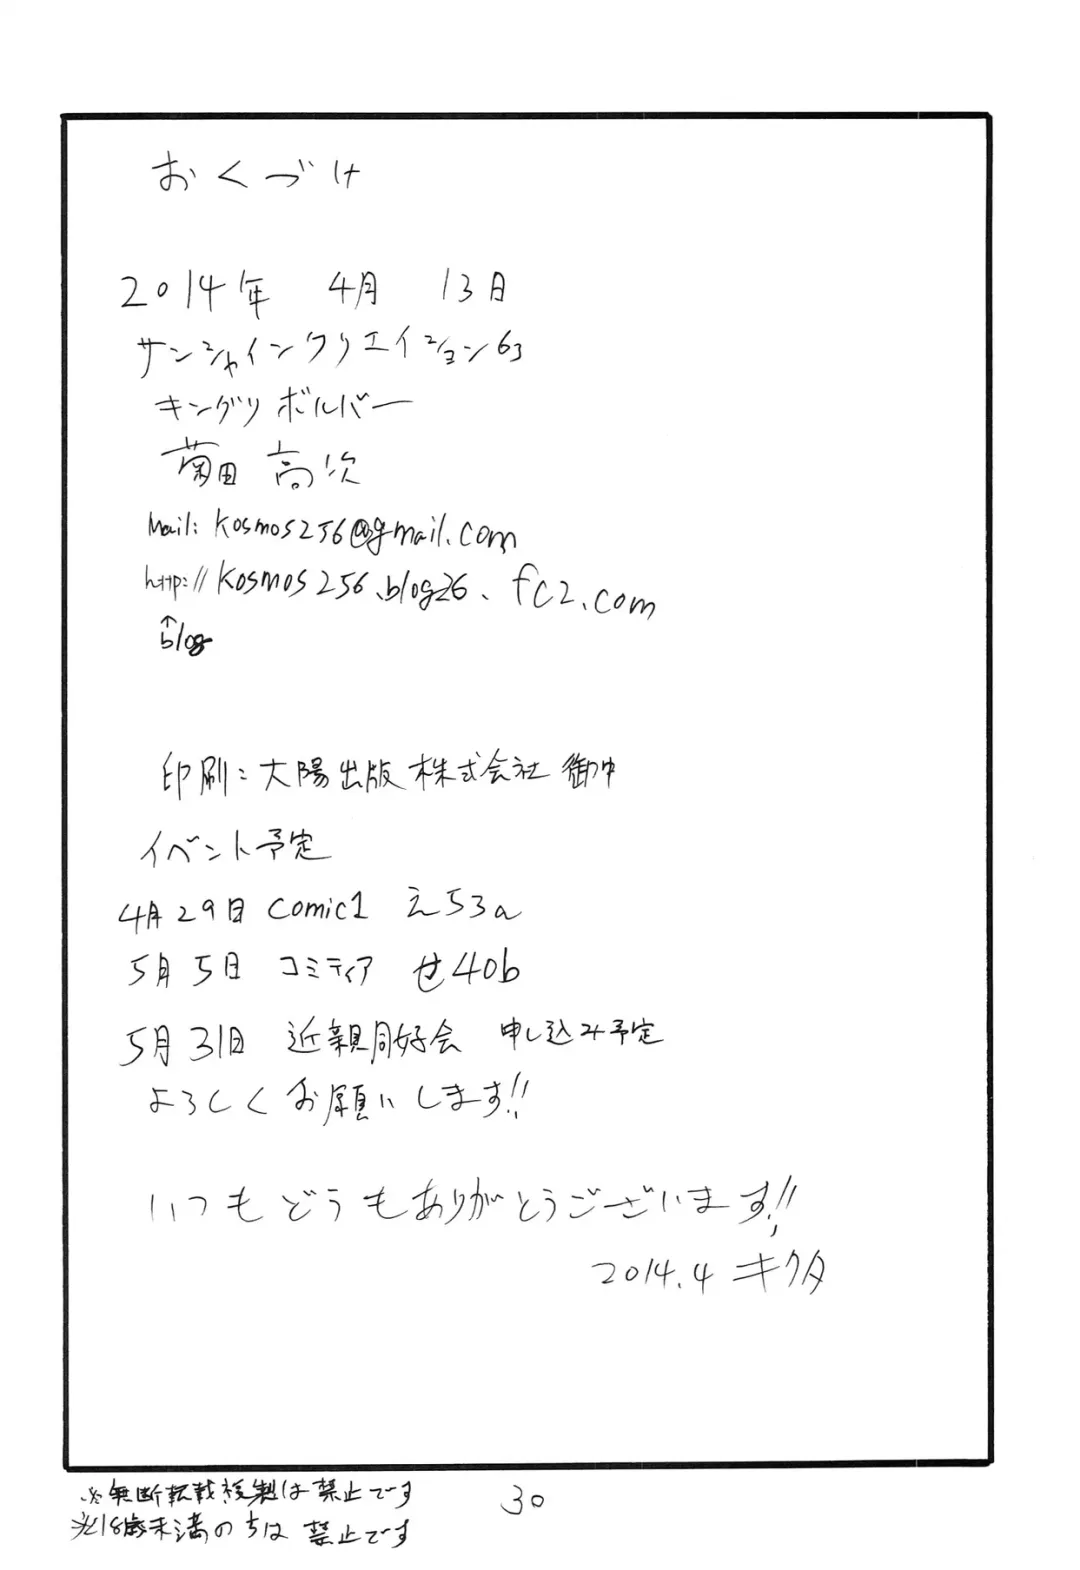 おくづけ
2014年 4月 13日
サンシャインクリエイション63
キングリボルバー
菊田 高次
Mail: kosmos256@gmail.com
http://kosmos256.blog26.fc2.com
↑
blog
印刷：大陽出版株式会社 御中
イベント予定
4月29日 comic1 え53a
5月5日 コミティア せ40b
5月31日 近親同好会 申し込み予定
よろしくお願いします!!
いつもどうもありがとうございます!!
2014.4 キクタ
※無断転載複製は禁止です
※18歳未満の
は 禁止です
30